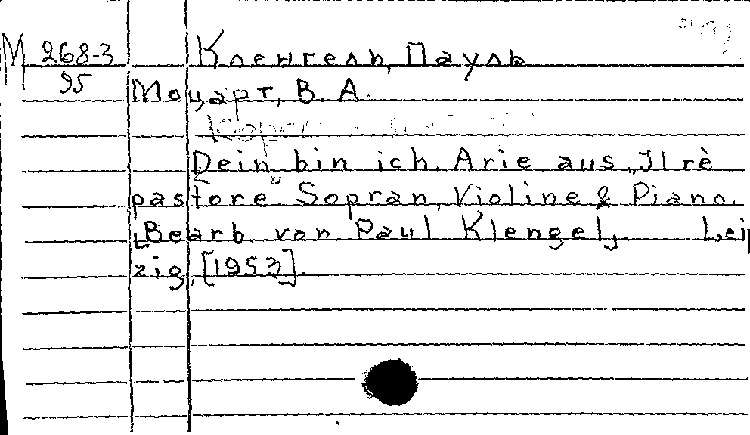 М 268-3 Кленгель, Пауль
95 Моцарт, В. А.
Dein bin ich. Arie aus „Il rè
pastore“ Sopran, Violine & Piano.
[Bearb. von Paul Klengel]. Leip
zig, [1953].